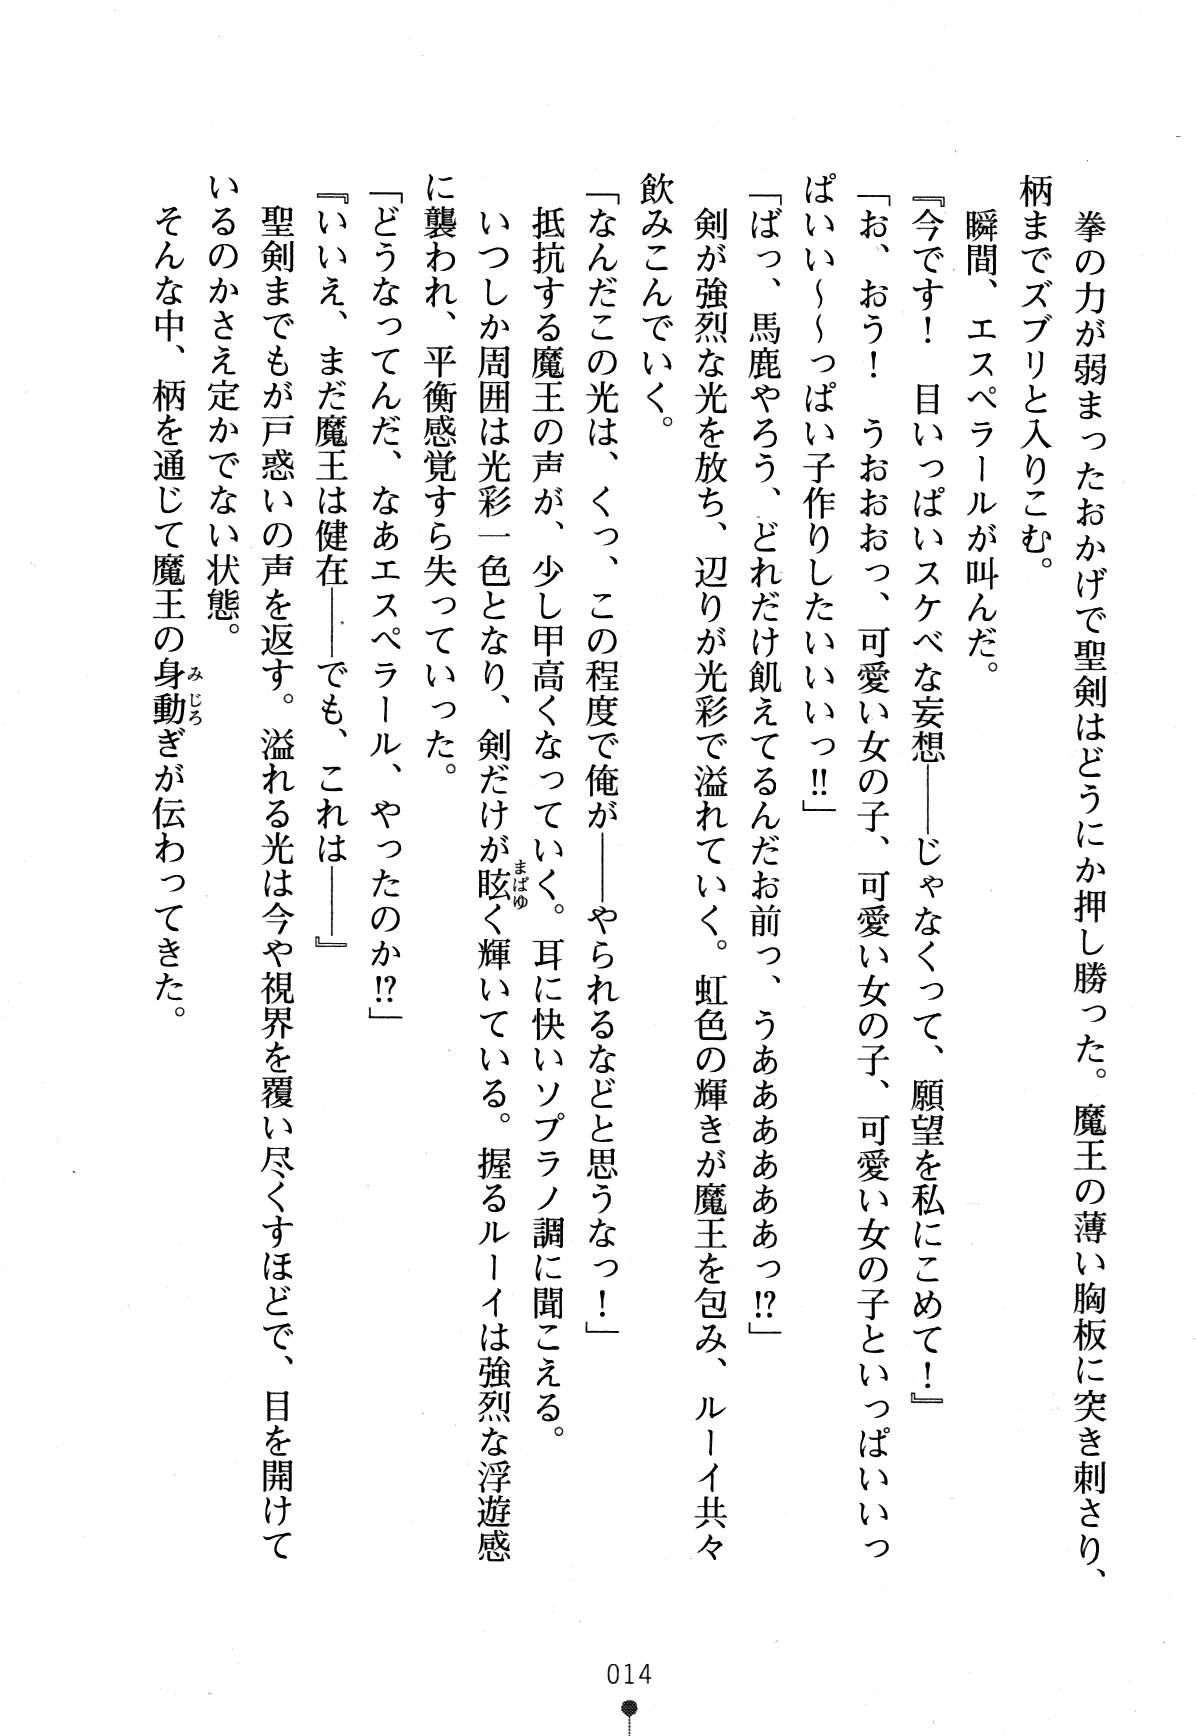 拳の力が弱まったおかげで聖剣はどうにか押し勝った。魔王の薄い胸板に突き刺さり、
柄までズブリと入りこむ。
瞬間、エスペラールが叫んだ。
『今です！　目いっぱいスケベな妄想――じゃなくって、願望を私にこめて！』
「お、おう！　うおおおっ、可愛い女の子、可愛い女の子、可愛い女の子といっぱいいっ
ぱいい～～っぱい子作りしたいいいいっ!!」
「ばっ、馬鹿やろう、どれだけ飢えてるんだお前っ、うああああああっ!?」
剣が強烈な光を放ち、辺りが光彩で溢れていく。虹色の輝きが魔王を包み、ルーイ共々
飲みこんでいく。
「なんだこの光は、くっ、この程度で俺が――やられるなどと思うなっ！」
抵抗する魔王の声が、少し甲高くなっていく。耳に快いソプラノ調に聞こえる。
いつしか周囲は光彩一色となり、剣だけが眩く輝いている。握るルーイは強烈な浮遊感
まばゆ
に襲われ、平衡感覚すら失っていった。
「どうなってんだ、なあエスペラール、やったのか!?」
『いいえ、まだ魔王は健在――でも、これは――』
聖剣までもが戸惑いの声を返す。溢れる光は今や視界を覆い尽くすほどで、目を開けて
いるのかさえ定かでない状態。
そんな中、柄を通じて魔王の身動ぎが伝わってきた。
みじろ
014